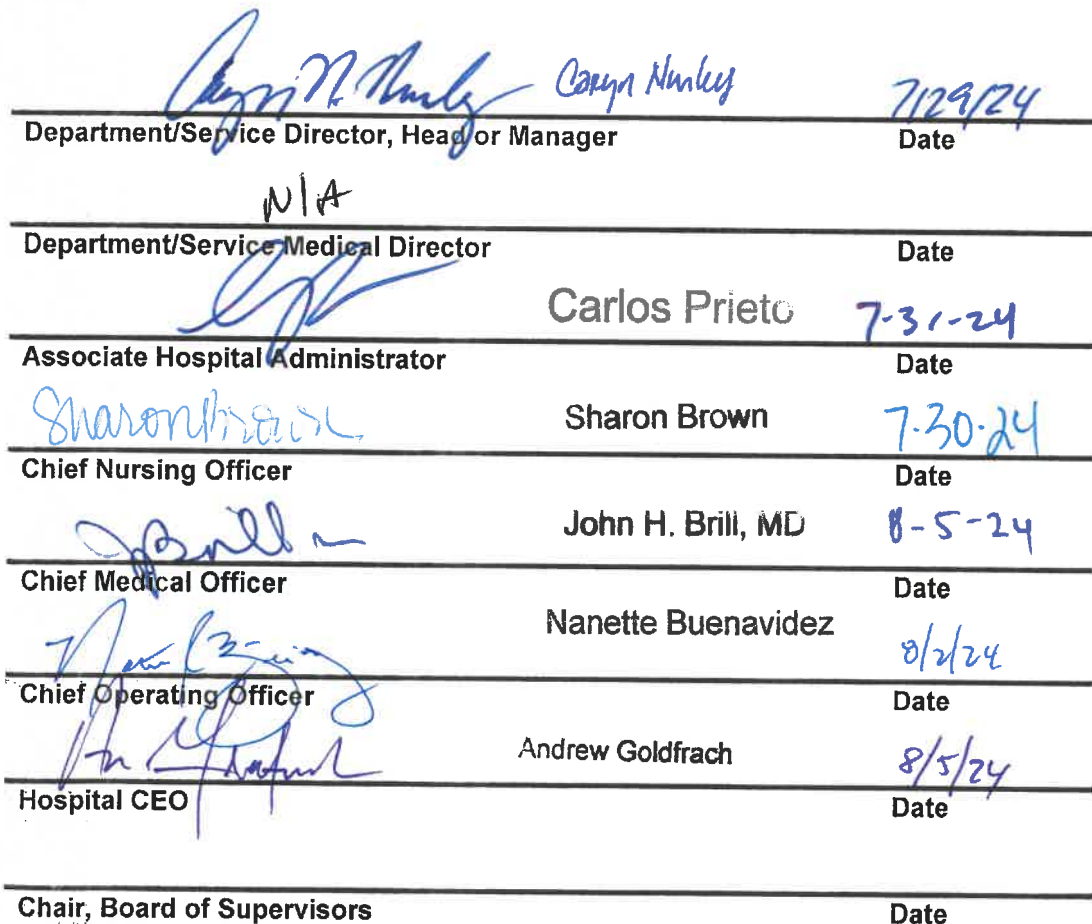 Caryn Nunley 7/29/24
Department/Service Director, Head or Manager Date
N/A
Department/Service Medical Director Date
Carlos Prieto 7-31-24
Associate Hospital Administrator Date
Sharon Brown Sharon Brown 7-30-24
Chief Nursing Officer Date
JBrill John H. Brill, MD 8-5-24
Chief Medical Officer Date
Nanette Buenavidez 8/2/24
Chief Operating Officer Date
Andrew Goldfrach 8/5/24
Hospital CEO Date
Chair, Board of Supervisors Date